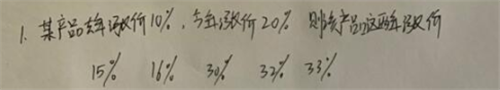 1. 某产品去年涨价10%,今年涨价20% 则该产品这两年涨价
15% 16% 30% 32% 33%